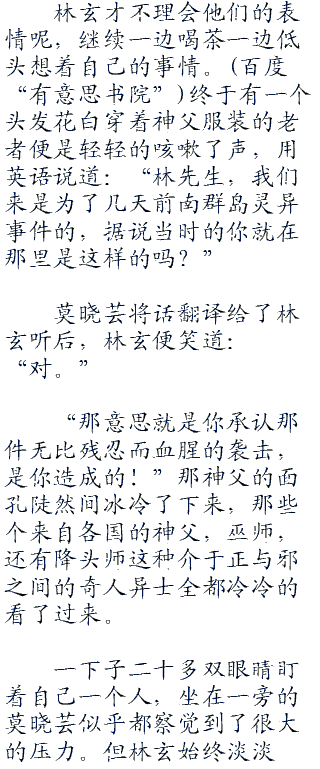 林玄才不理会他们的表
情呢，继续一边喝茶一边低
头想着自己的事情。(百度
“有意思书院”)终于有一个
头发花白穿着神父服装的老
者便是轻轻的咳嗽了声，用
英语说道：“林先生，我们
来是为了几天前南群岛灵异
事件的，据说当时的你就在
那里是这样的吗？”
莫晓芸将话翻译给了林
玄听后，林玄便笑道：
“对。”
“那意思就是你承认那
件无比残忍而血腥的袭击，
是你造成的！”那神父的面
孔陡然间冰冷了下来，那些
个来自各国的神父，巫师，
还有降头师这种介于正与邪
之间的奇人异士全都冷冷的
看了过来。
一下子二十多双眼睛盯
着自己一个人，坐在一旁的
莫晓芸似乎都察觉到了很大
的压力。但林玄始终淡淡